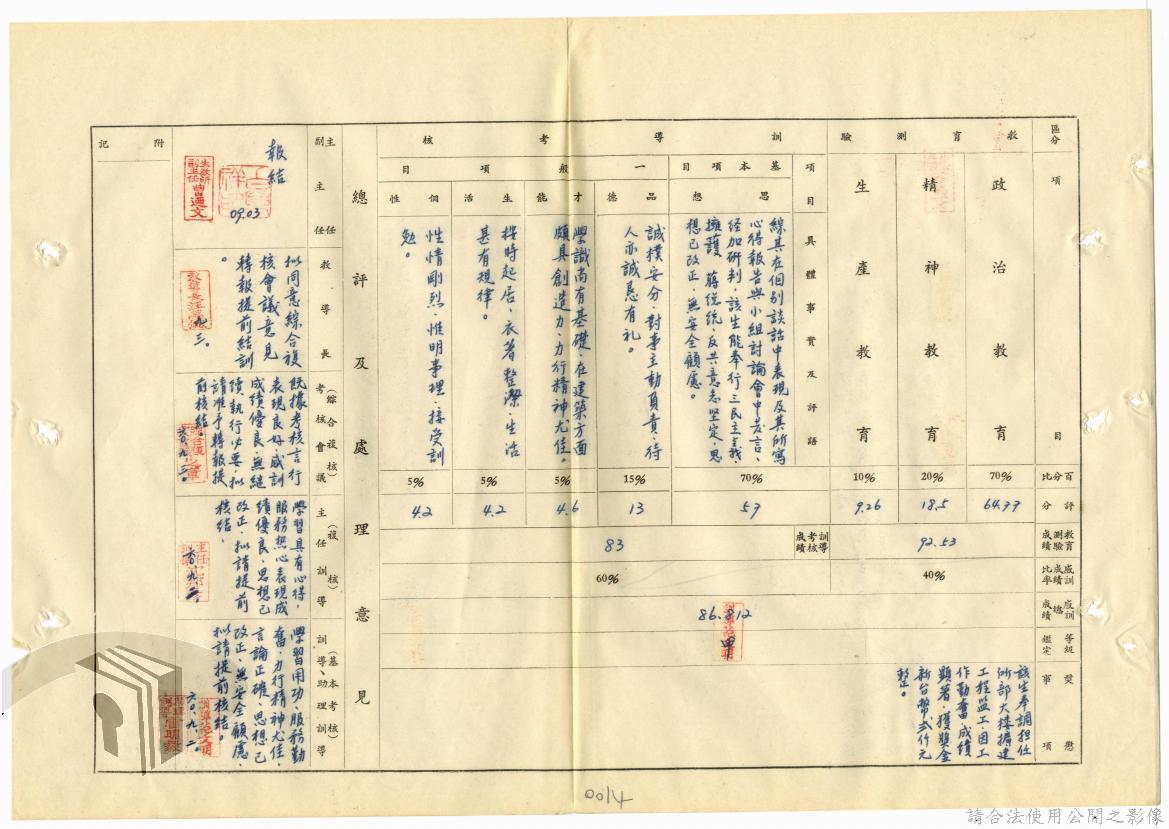 區分
項
目
教育測驗
政治教育
精神教育
生產教育
百分比
70%
20%
10%
評分
64.77
18.5
9.26
教育測驗成績
92.53
訓導考核
基本項目
一般項目
項目
具體事實及評語
思想
綜其在個別談話中表現及其所寫
心得報告與小組討論會中發言、
經加研判、該生能奉行三民主義、
擁護 蔣總統、反共意志堅定、思
想已改正、無安全顧慮。
品德
誠樸安分、對事主動負責、待
人亦誠懇有礼。
才能
學識尚有基礎、在建築方面
頗具創造力、力行精神尤佳。
生活
按時起居、衣著整潔、生活
甚有規律。
個性
性情剛烈、惟明事理、接受訓
勉。
70%
15%
5%
5%
5%
57
13
4.6
4.2
4.2
訓導考核成績
83
感訓成績比率
40%
60%
感訓總成績
86.812
等級鑑定
甲
獎懲事項
該生奉調担任
所部大樓擴建
工程監工、因工
作勤奮成績
顯著、獲獎金
新台幣貳仟元
整。
總評及處理意見
(基本考核)
訓導、助理訓導
學習用功、服務勤
奮、力行精神尤佳、
言論正確、思想已
改正、無安全顧慮、
拟請提前核結。
六〇、九、二。
(複核)
主任訓導
學習具有心得、
服務热心表現成
績優良、思想已
改正、拟請提前
核結、
(綜合複核)
考核會議
既據考核言行
表現良好、感訓
成績優良、無繼
續執行必要、拟
請准予轉報提
前核結。
教導長
拟同意綜合複
核會議意見
轉報提前結訓
。
九、三、
主任
副主任
報結
生教所
副主任
曹通文
09.03
附記
0014
請合法使用公開之影像